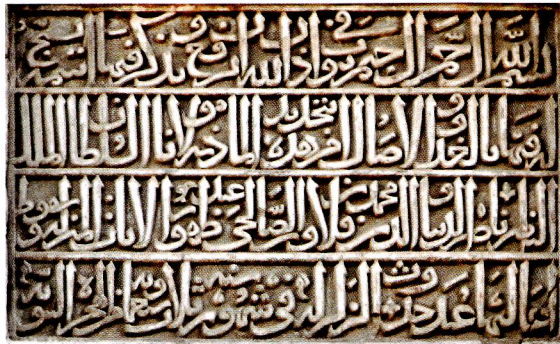 بسم الله الرحمن الرحيم في بيوت اذن الله ان ترفع ويذكر فيها اسمه يسبح
له فيها بالغدو والاصال امر بتجديد هذه الماذنة مولانا السلطان الملك
الناصر ناصر الدنيا والدين محمد بن قلاوون الصالحي ظهور الايات المنزلة وسقوط
اعاليها عند حدوث الزلزلة في شهور سنة ثلاث وسبعمائة الهجرة النبوية